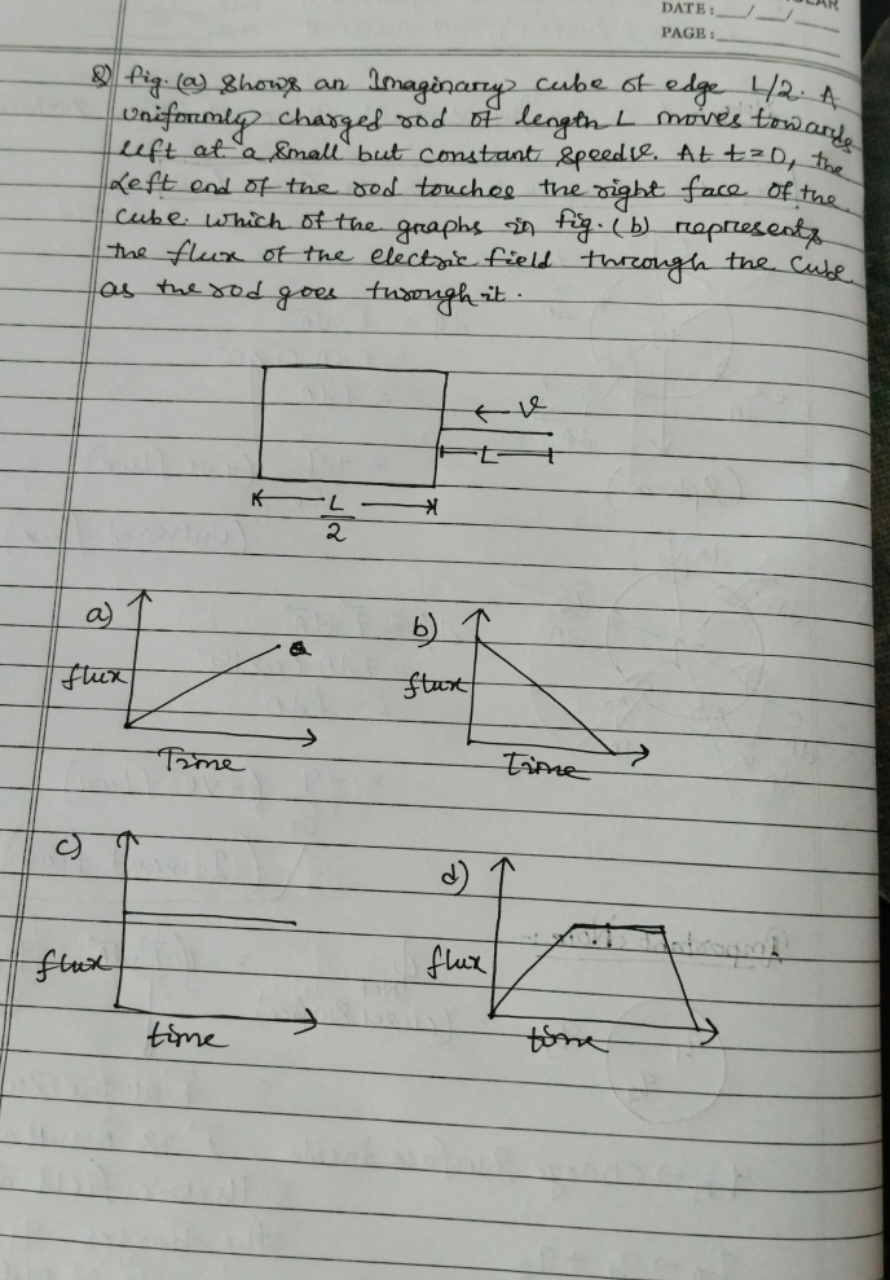 DATE: __/__/__
PAGE:
Q) fig. (a) shows an Imaginary cube of edge L/2. A
uniformly charged rod of length L moves towards
left at a small but constant speed v. At t=0, the
left end of the rod touches the right face of the
cube. which of the graphs in fig. (b) represents
the flux of the electric field through the cube
as the rod goes through it.
← v
L
L/2
a)
b)
flux
flux
Time
Time
c)
d)
flux
flux
time
time